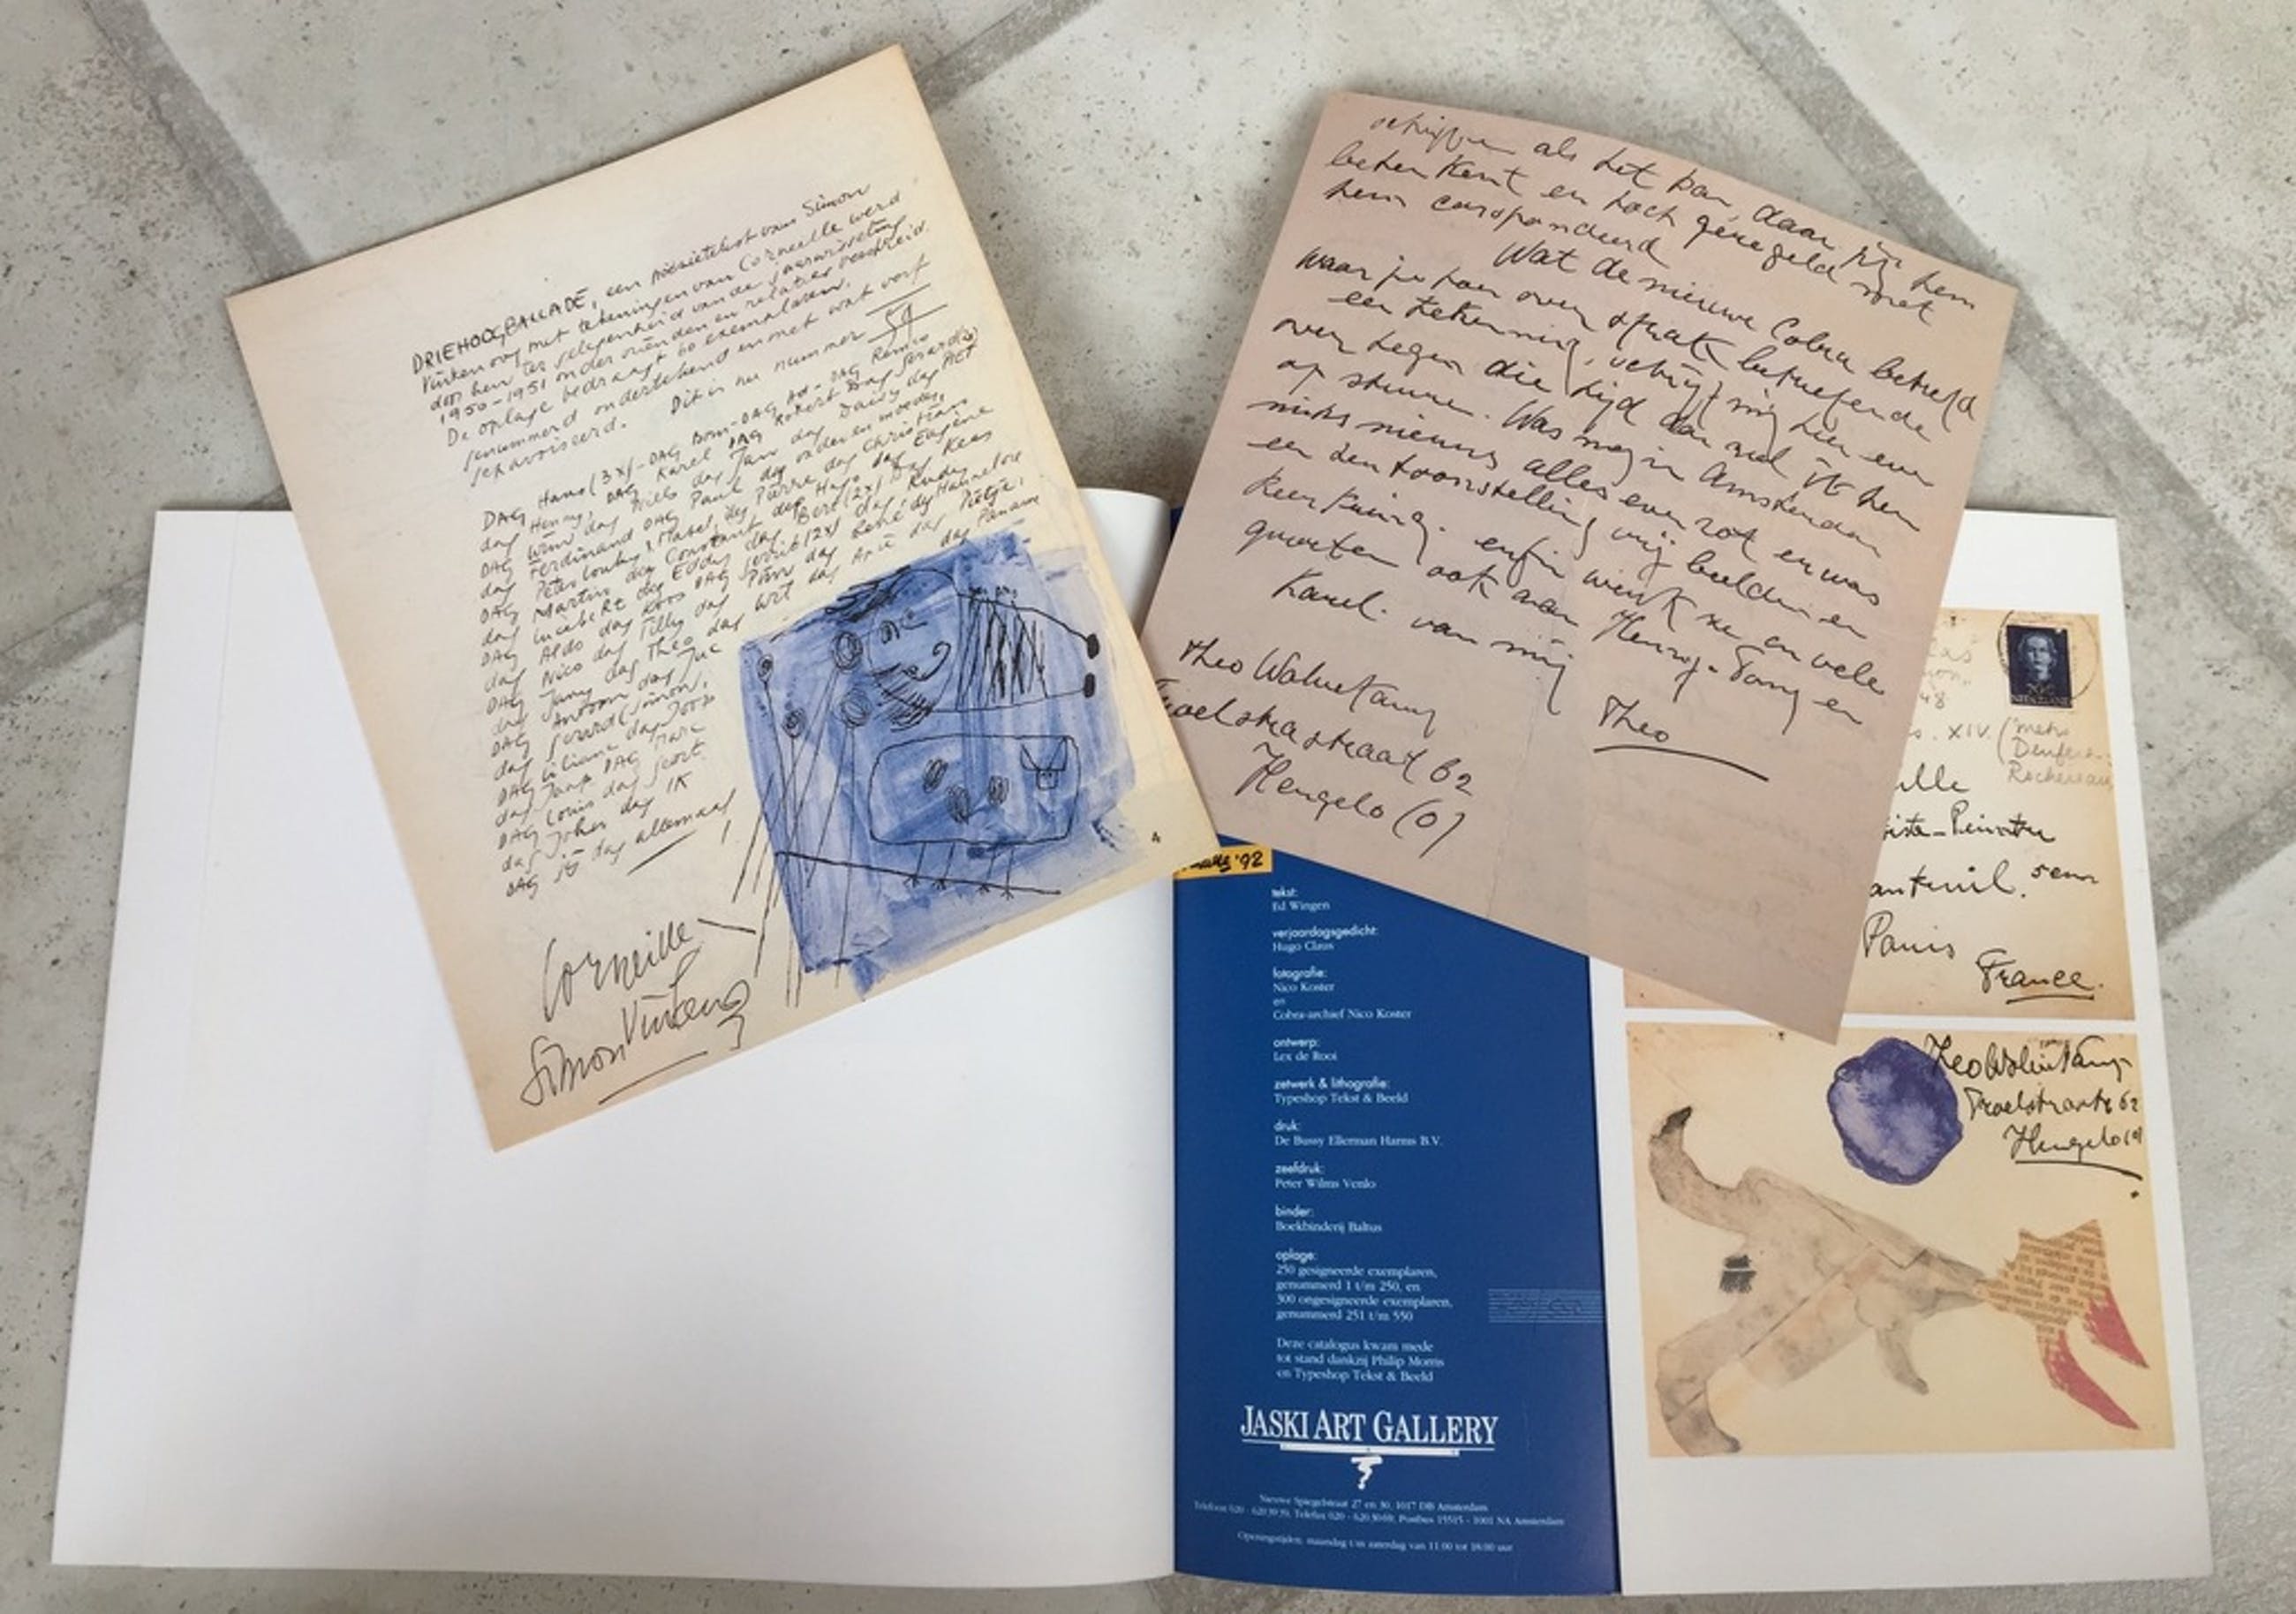 DRIEHOOGBALLADE, een poëzietekst van Simon
Vinkenoog met tekeningen van Corneille werd
door hen ter gelegenheid van de jaarwisseling
1950-1951 onder vrienden en relaties verspreid.
De oplage bedraagt 60 exemplaren,
genummerd ondertekend en met wat verf
Dit is nummer 59
DAG Hans (3x) - DAG Bom - DAG Ad - DAG Remco
dag Henny, DAG Karel DAG Robert Dag Gerard
DAG Wim dag Niels dag Jan dag Daisy dag PIET
dag Ferdinand DAG Paul dag vader en moeder,
dag Christiaan
dag Martin dag Constant dag Hugo dag Eugène
dag Lucebert dag Eddy dag Bert (2x) Dag Kees
DAG Aldo dag Koos DAG Gerrit (2x) dag Rudy
dag Nico dag Tilly dag Pierre dag René dag Hannelore
DAG Jany dag Theo dag Wit dag Arie dag Pietje,
dag Antoon dag Luc dag Paname
DAG Gerard (Simon,
dag Liliane dag Joop
dag Jaap DAG Marc
DAG Louis dag Geert
dag Joker dag IK
DAG jij dag allemaal
Corneille
Simon Vinkenoog
schrijven als het kan, daar jij hem
beter kent en toch geregeld met
hem corespondeerd
Wat de nieuwe Cobra betreft
waar je toen over sprak betreffende
een tekening, schrijf mij hier een
over tegen die tijd dan zal ik hem
op sturen. Was nog in Amsterdam
niets nieuws alles even rot en was
een den toonstelling vrij beelden en
keer kunig. enfin werk ze en vele
groeten ook aan Henny. Tony en
Karel. van mij
Theo
Theo Wolvekamp
Troelstrastraat 62
Hengelo (O)
XIV. (metro
Denfert-
Rochereau
Paris
France.
Theo Wolvekamp
Troelstrastr 62
Hengelo (O)
'92
tekst:
Ed Wingen
verjaardagsgedicht:
Hugo Claus
fotografie:
Nico Koster
en
Cobra-archief Nico Koster
ontwerp:
Lex de Rooi
zetwerk & lithografie:
Typeshop Tekst & Beeld
druk:
De Bussy Ellerman Harms B.V.
zeefdruk:
Peter Wilms Venlo
binder:
Boekbinderij Baltus
oplage:
250 gesigneerde exemplaren,
genummerd 1 t/m 250, en
300 ongesigneerde exemplaren,
genummerd 251 t/m 550
Deze catalogus kwam mede
tot stand dankzij Philip Morris
en Typeshop Tekst & Beeld
JASKI ART GALLERY
Nieuwe Spiegelstraat 27 en 30, 1017 DB Amsterdam
Telefoon 020 - 620.39.39, Telefax 020 - 620.30.69, Postbus 15515 - 1001 NA Amsterdam
Openingstijden: maandag t/m zaterdag van 11.00 tot 18.00 uur